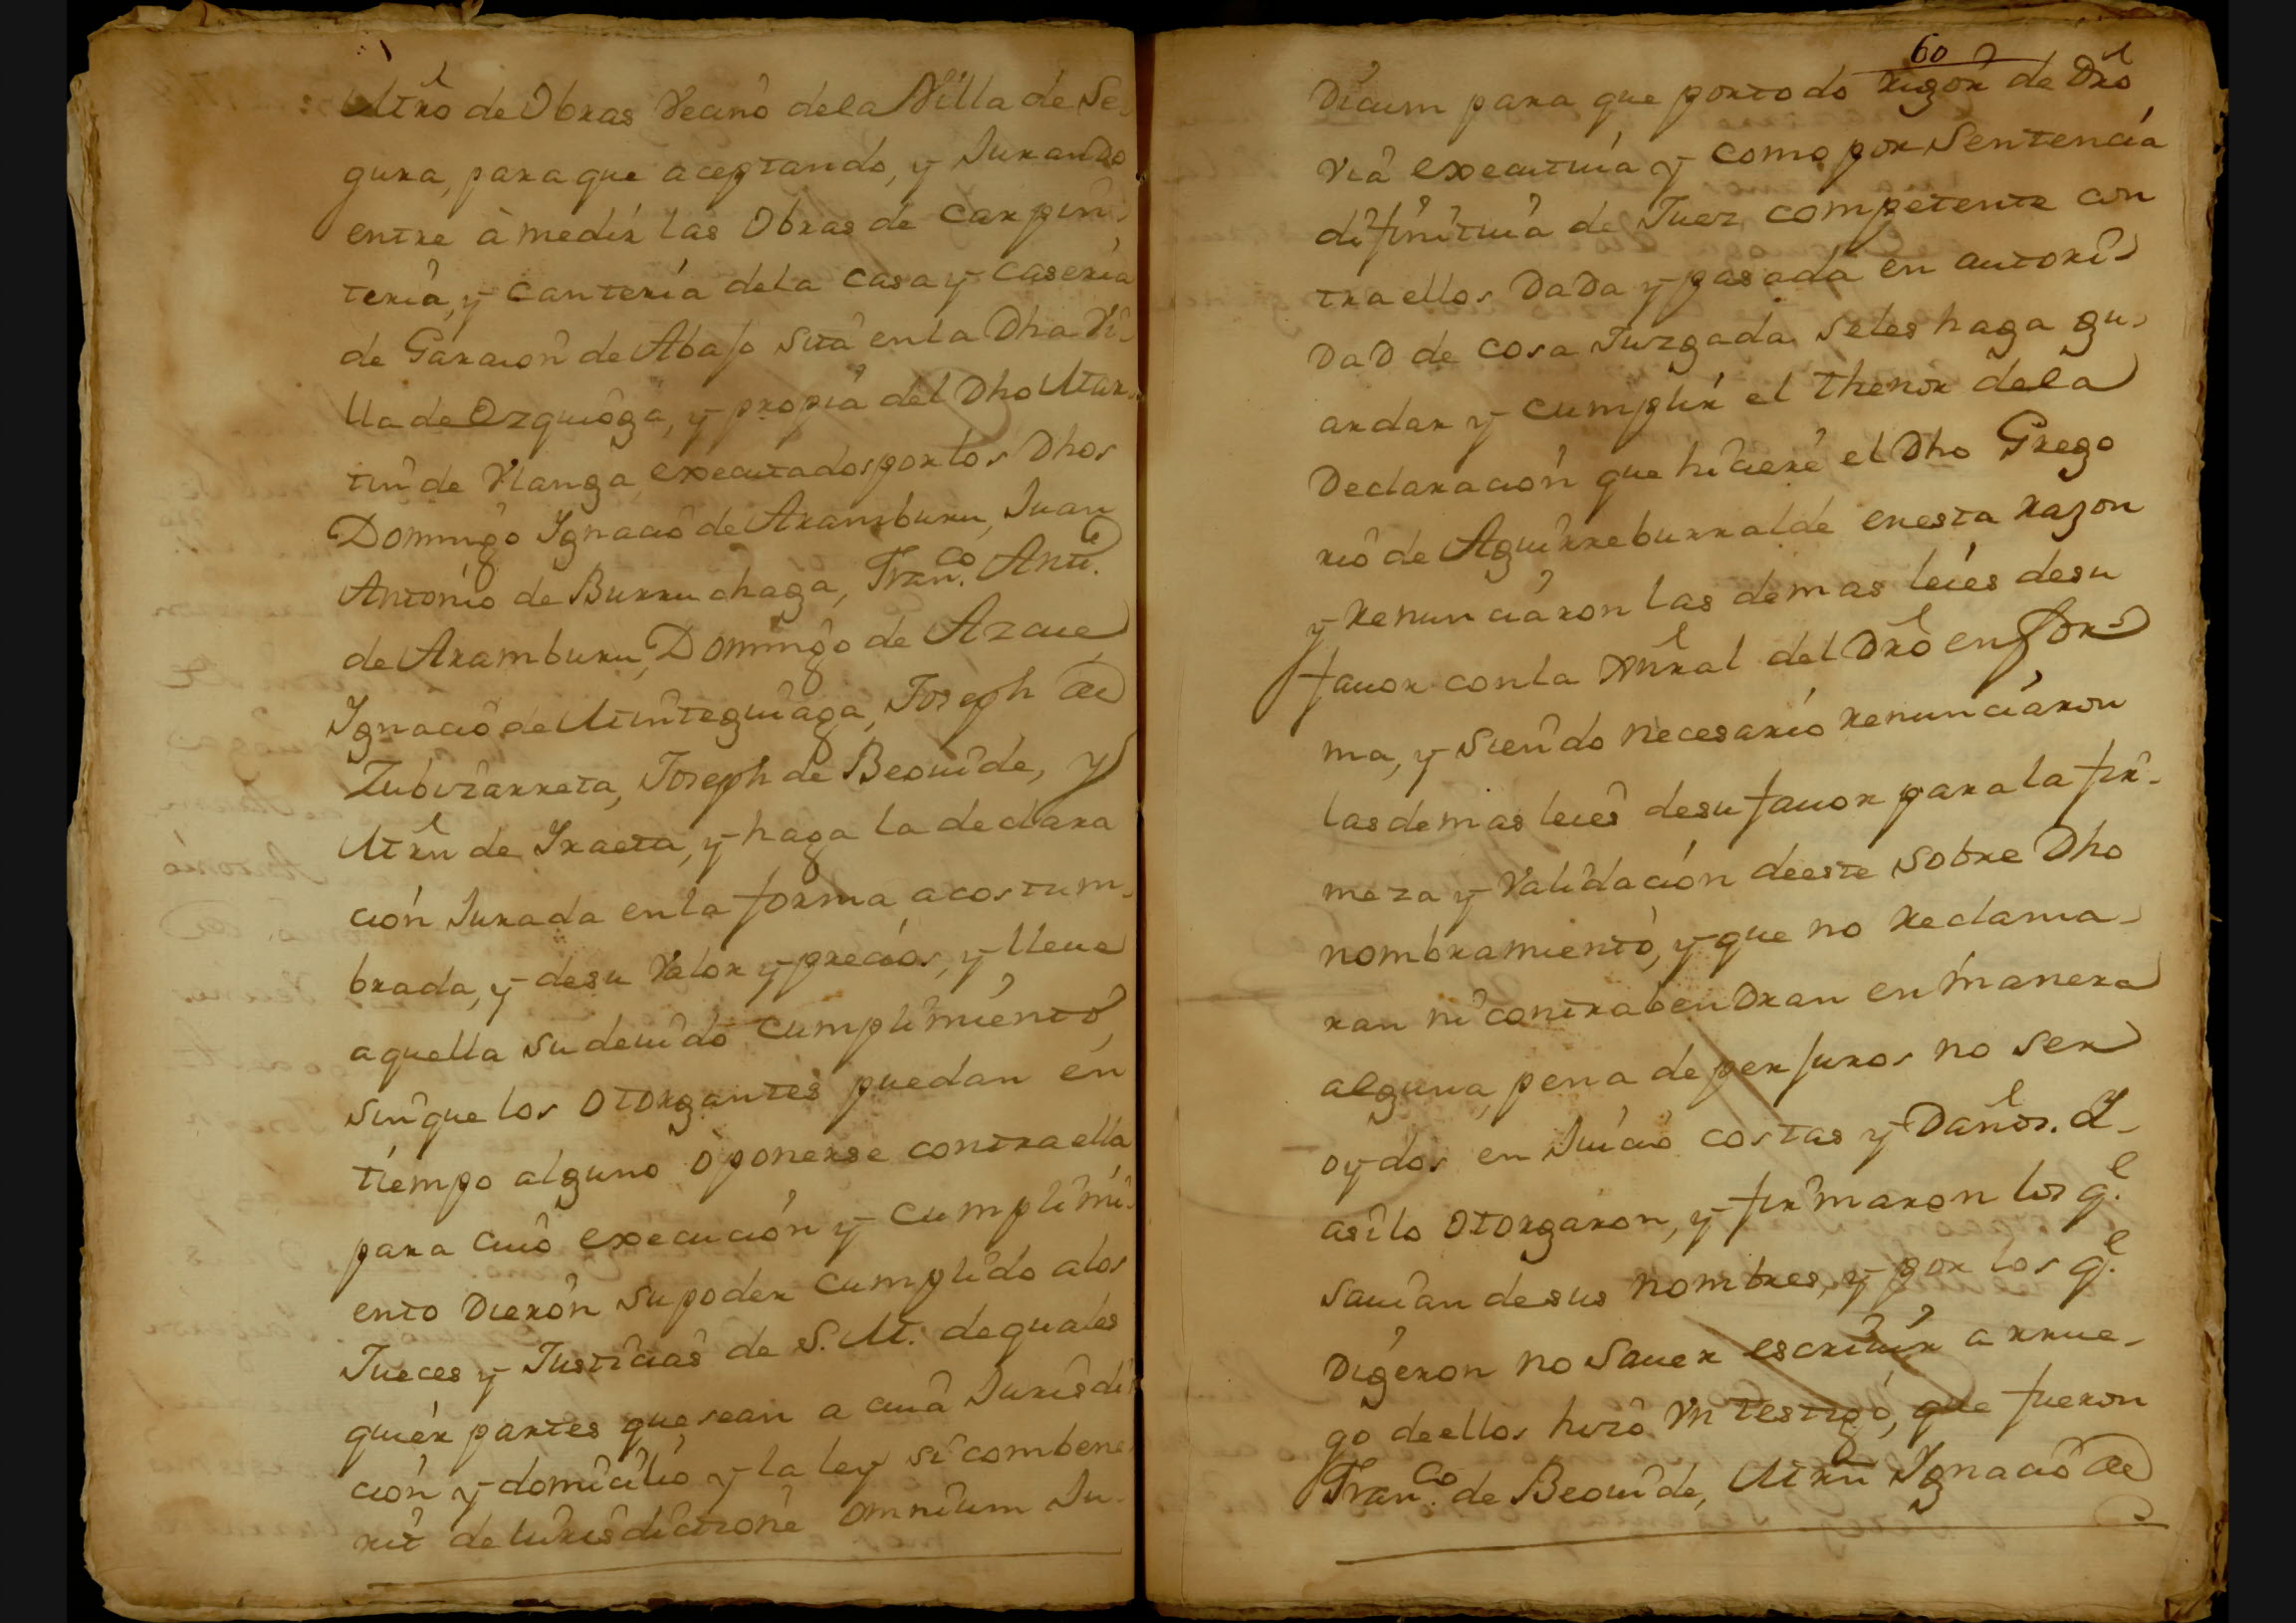 Mtro de Obras Vecino dela Villa de Se-
gura, para que aceptando, y Jurando
entre à medir las Obras de Carpin-
teria, y Canteria dela Casa y Caseria
de Garacion de Abajo sita en la Dha Vi-
lla de Ezquioga, y propia del Dho Mar-
tin de Vlanga executados por los Dhos
Domingo Ignacio de Aramburu, Juan
Antonio de Burruchaga, Franco. Anto.
de Aramburu, Domingo de Azcue
Ignacio de Minteguiaga, Joseph de
Zubizarreta, Joseph de Beouide, y
Mrn de Iraeta, y haga la declara
ción Jurada en la forma acostum-
brada, y desu Valor y precios, y lleue
aquella su deuido cumplimiento,
sin que los Otorgantes puedan en
tiempo alguno oponerse contra ella
para cuio execución y cumplimi-
ento Dieron su poder cumplido alos
Jueces y Justicias de S. M. de quales
quier partes que sean a cuia Jurisdi-
ción y domicilio y la ley si combene
rit de Iurisdictione omnium Ju-
60
Dicum para que portodo Rigor de Dro
Via executiua y como por Sentencia
difinitiua de Juez competente con
tra ellos DaDa y pasada en autori-
DaD de cosa Juzgada seles haga gu-
ardar y cumplir el thenor dela
Declaración que hiciere el Dho Grego
rio de Aguirreburralde en esta razon
y renunciaron las demas leies desu
fauor con la Gnral del Dro en for-
ma, y siendo necesario renunciaron
las demas leies desu fauor para la fir-
meza y Validación deeste sobre Dho
nombramiento, y que no Reclama-
ran ni contrabenDran en manera
alguna, pena de perjuros no ser
oydos en Juicio costas y Daños. I-
asilo otorgaron, y firmaron los q.e
sauian desus nombres, y por los q.e
Digeron no sauer escriuir a rrue-
go deellos hizo Vn testigo, que fueron
Franco. de Beouide, Mrn Ignacio de